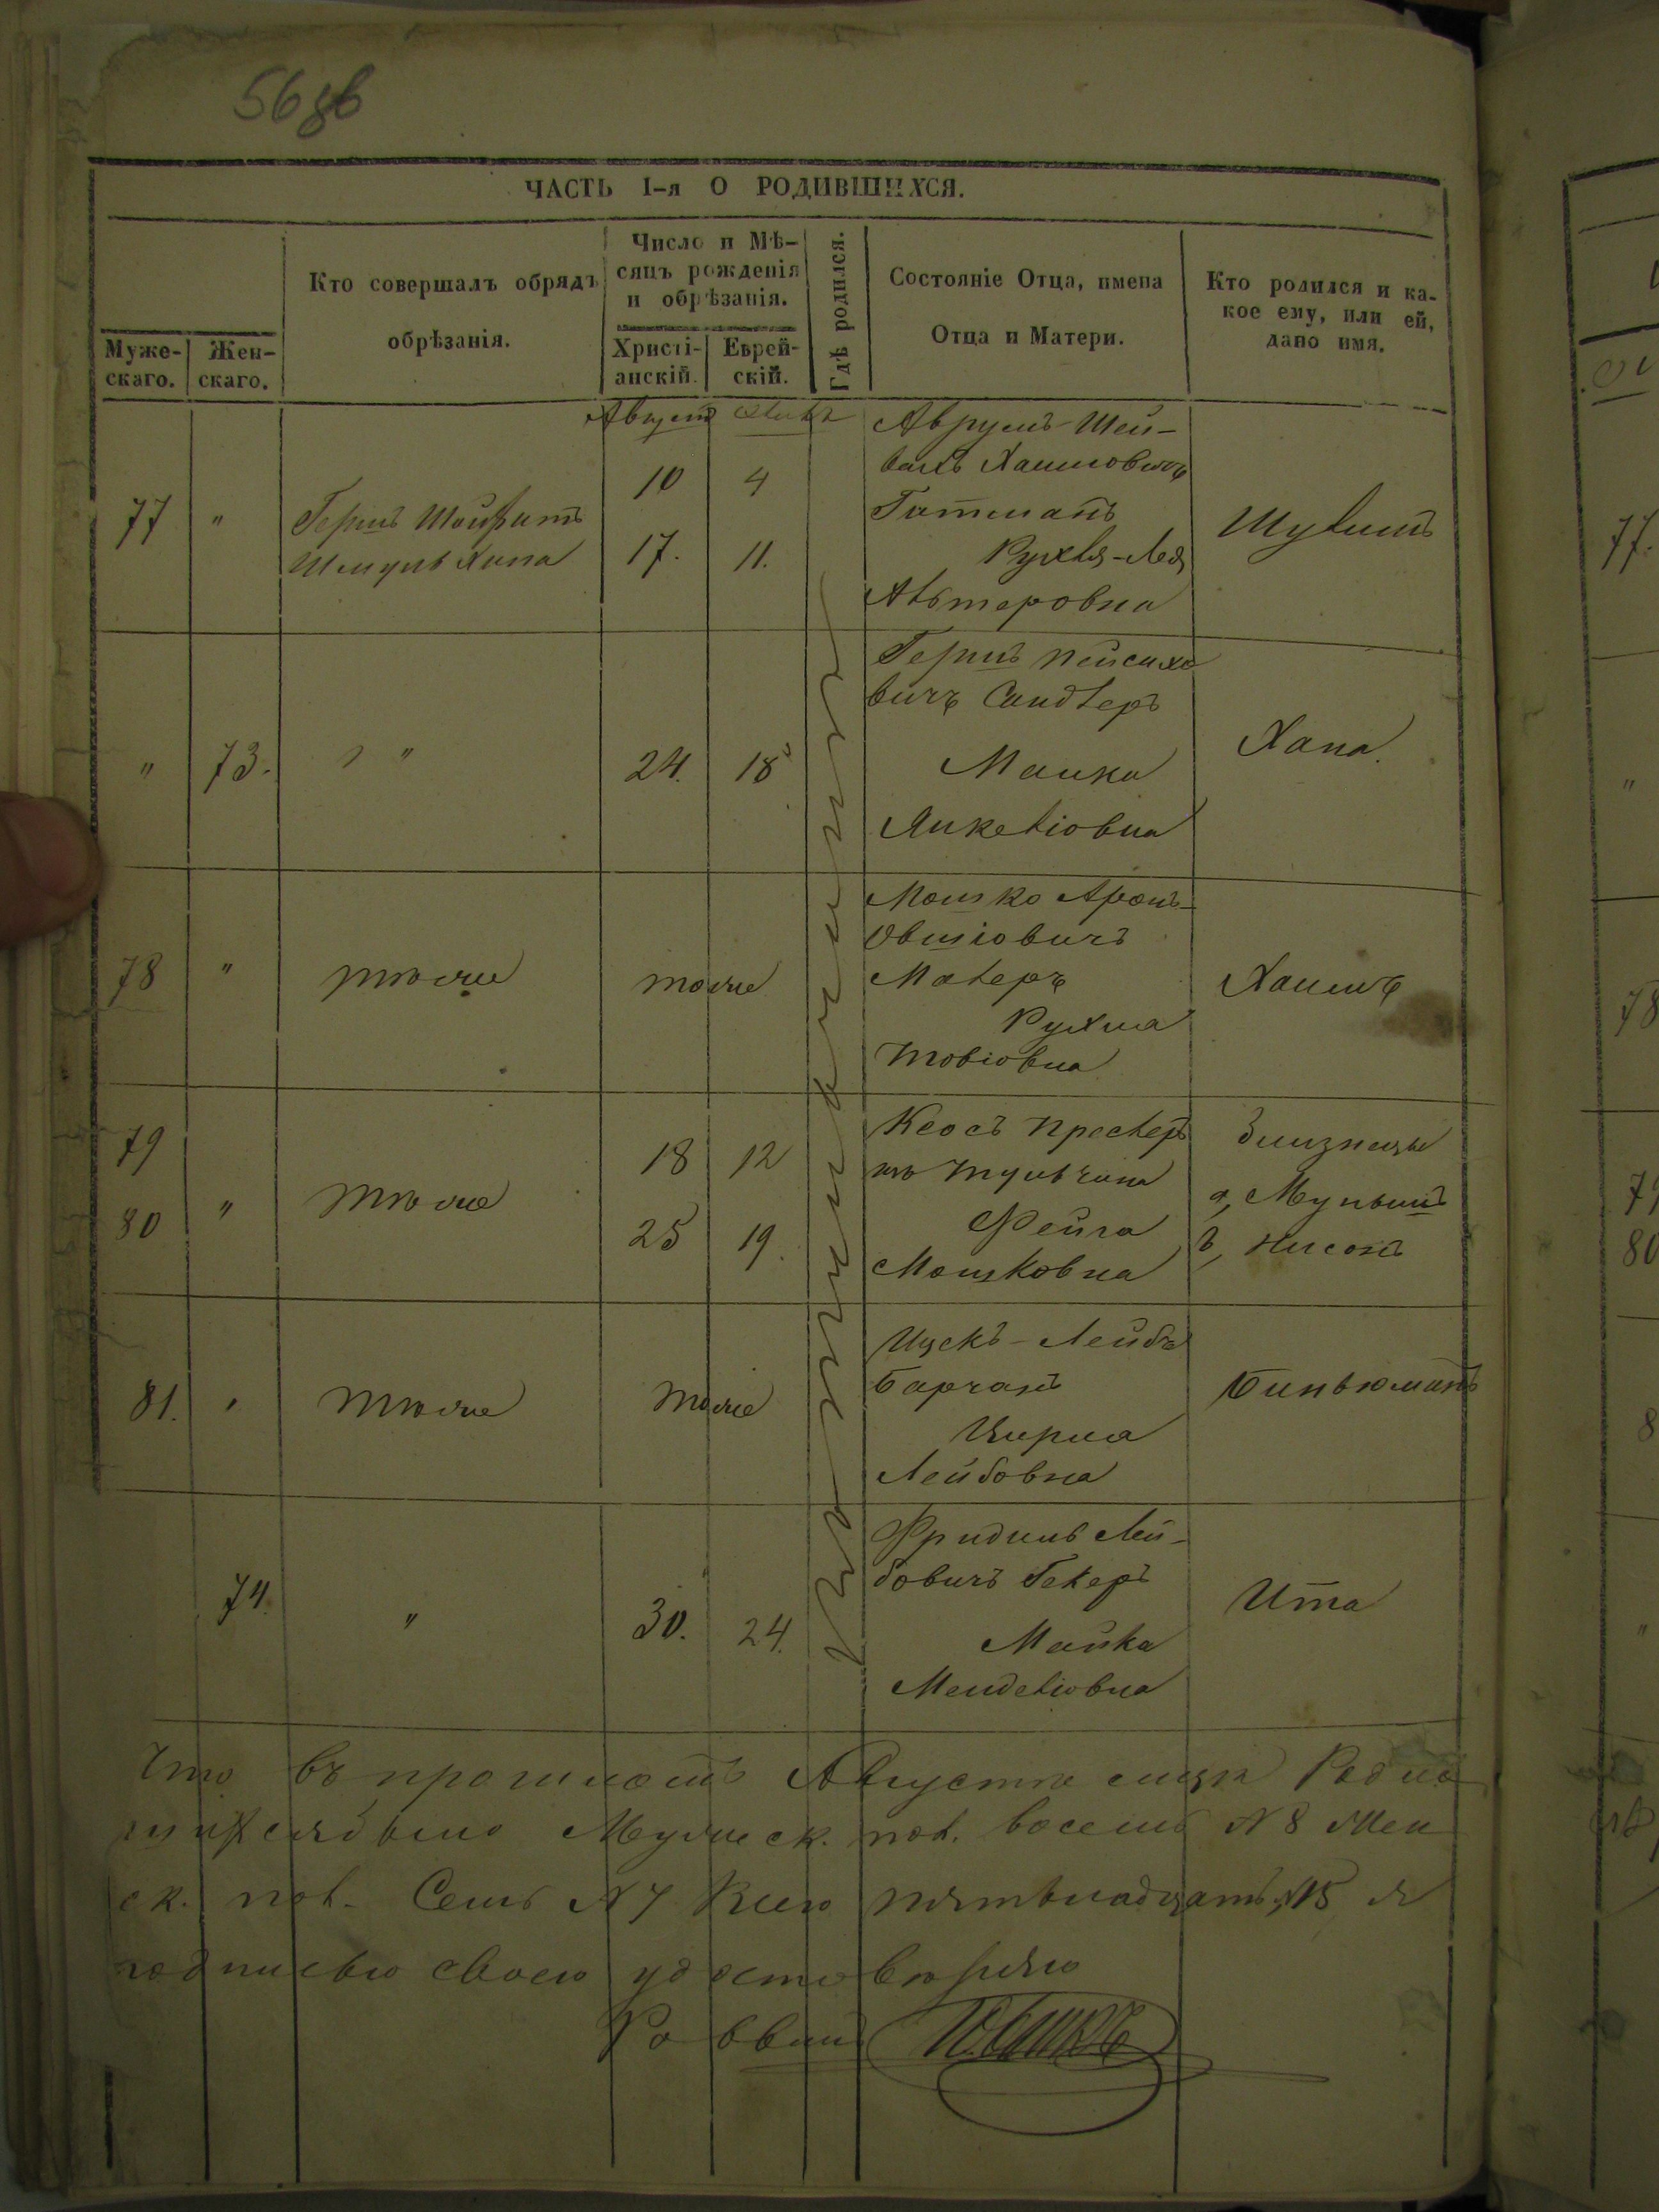 56 зв
ЧАСТЬ I-я О РОДИВШИХСЯ.
Муже-
скаго.
Жен-
скаго.
Кто совершалъ обрядъ
обрѣзанія.
Число и Мѣ-
сяцъ рожденія
и обрѣзанія.
Христі-
анскій.
Еврей-
скій.
Гдѣ родился.
Состояніе Отца, имена
Отца и Матери.
Кто родился и ка-
кое ему, или ей,
дано имя.
Августъ
77 "
Гершъ
Шмуль
10 4
17. 11.
Аврумъ Шей-
Хаимовичъ
Гитманъ
Рухля-Лея
Альтеровна
Шулимъ
" 73. " "
24. 18
Гершъ Пейсахо
вичъ Сандлеръ
Манка
Янкеліовна
Хана.
78 " тоже
тоже
Мошко Аронъ-
Овшіовичъ
Малеръ
Рухма
Товіовна
Хаимъ
79
80 " тоже
18 12
25 19.
Фейга
Мошковна
близнецы
а, Муньишъ
б, Нисонъ
81. " тоже
тоже
Ицекъ-Лейба
Барганъ
Цирла
Лейбовна
Биньюминъ
74. "
30. 24.
Фридиль Лей-
бовичъ Гекеръ
Манка
Менделіовна
Ита
Что въ прошломъ Августѣ мцѣ Родив
шихся было Мужеск. пол. восемь N 8 Жен
ск. пол. Семь N 7 Всего пятьнадцать, N15 я
подписью своею удостовѣряю
Раввинъ